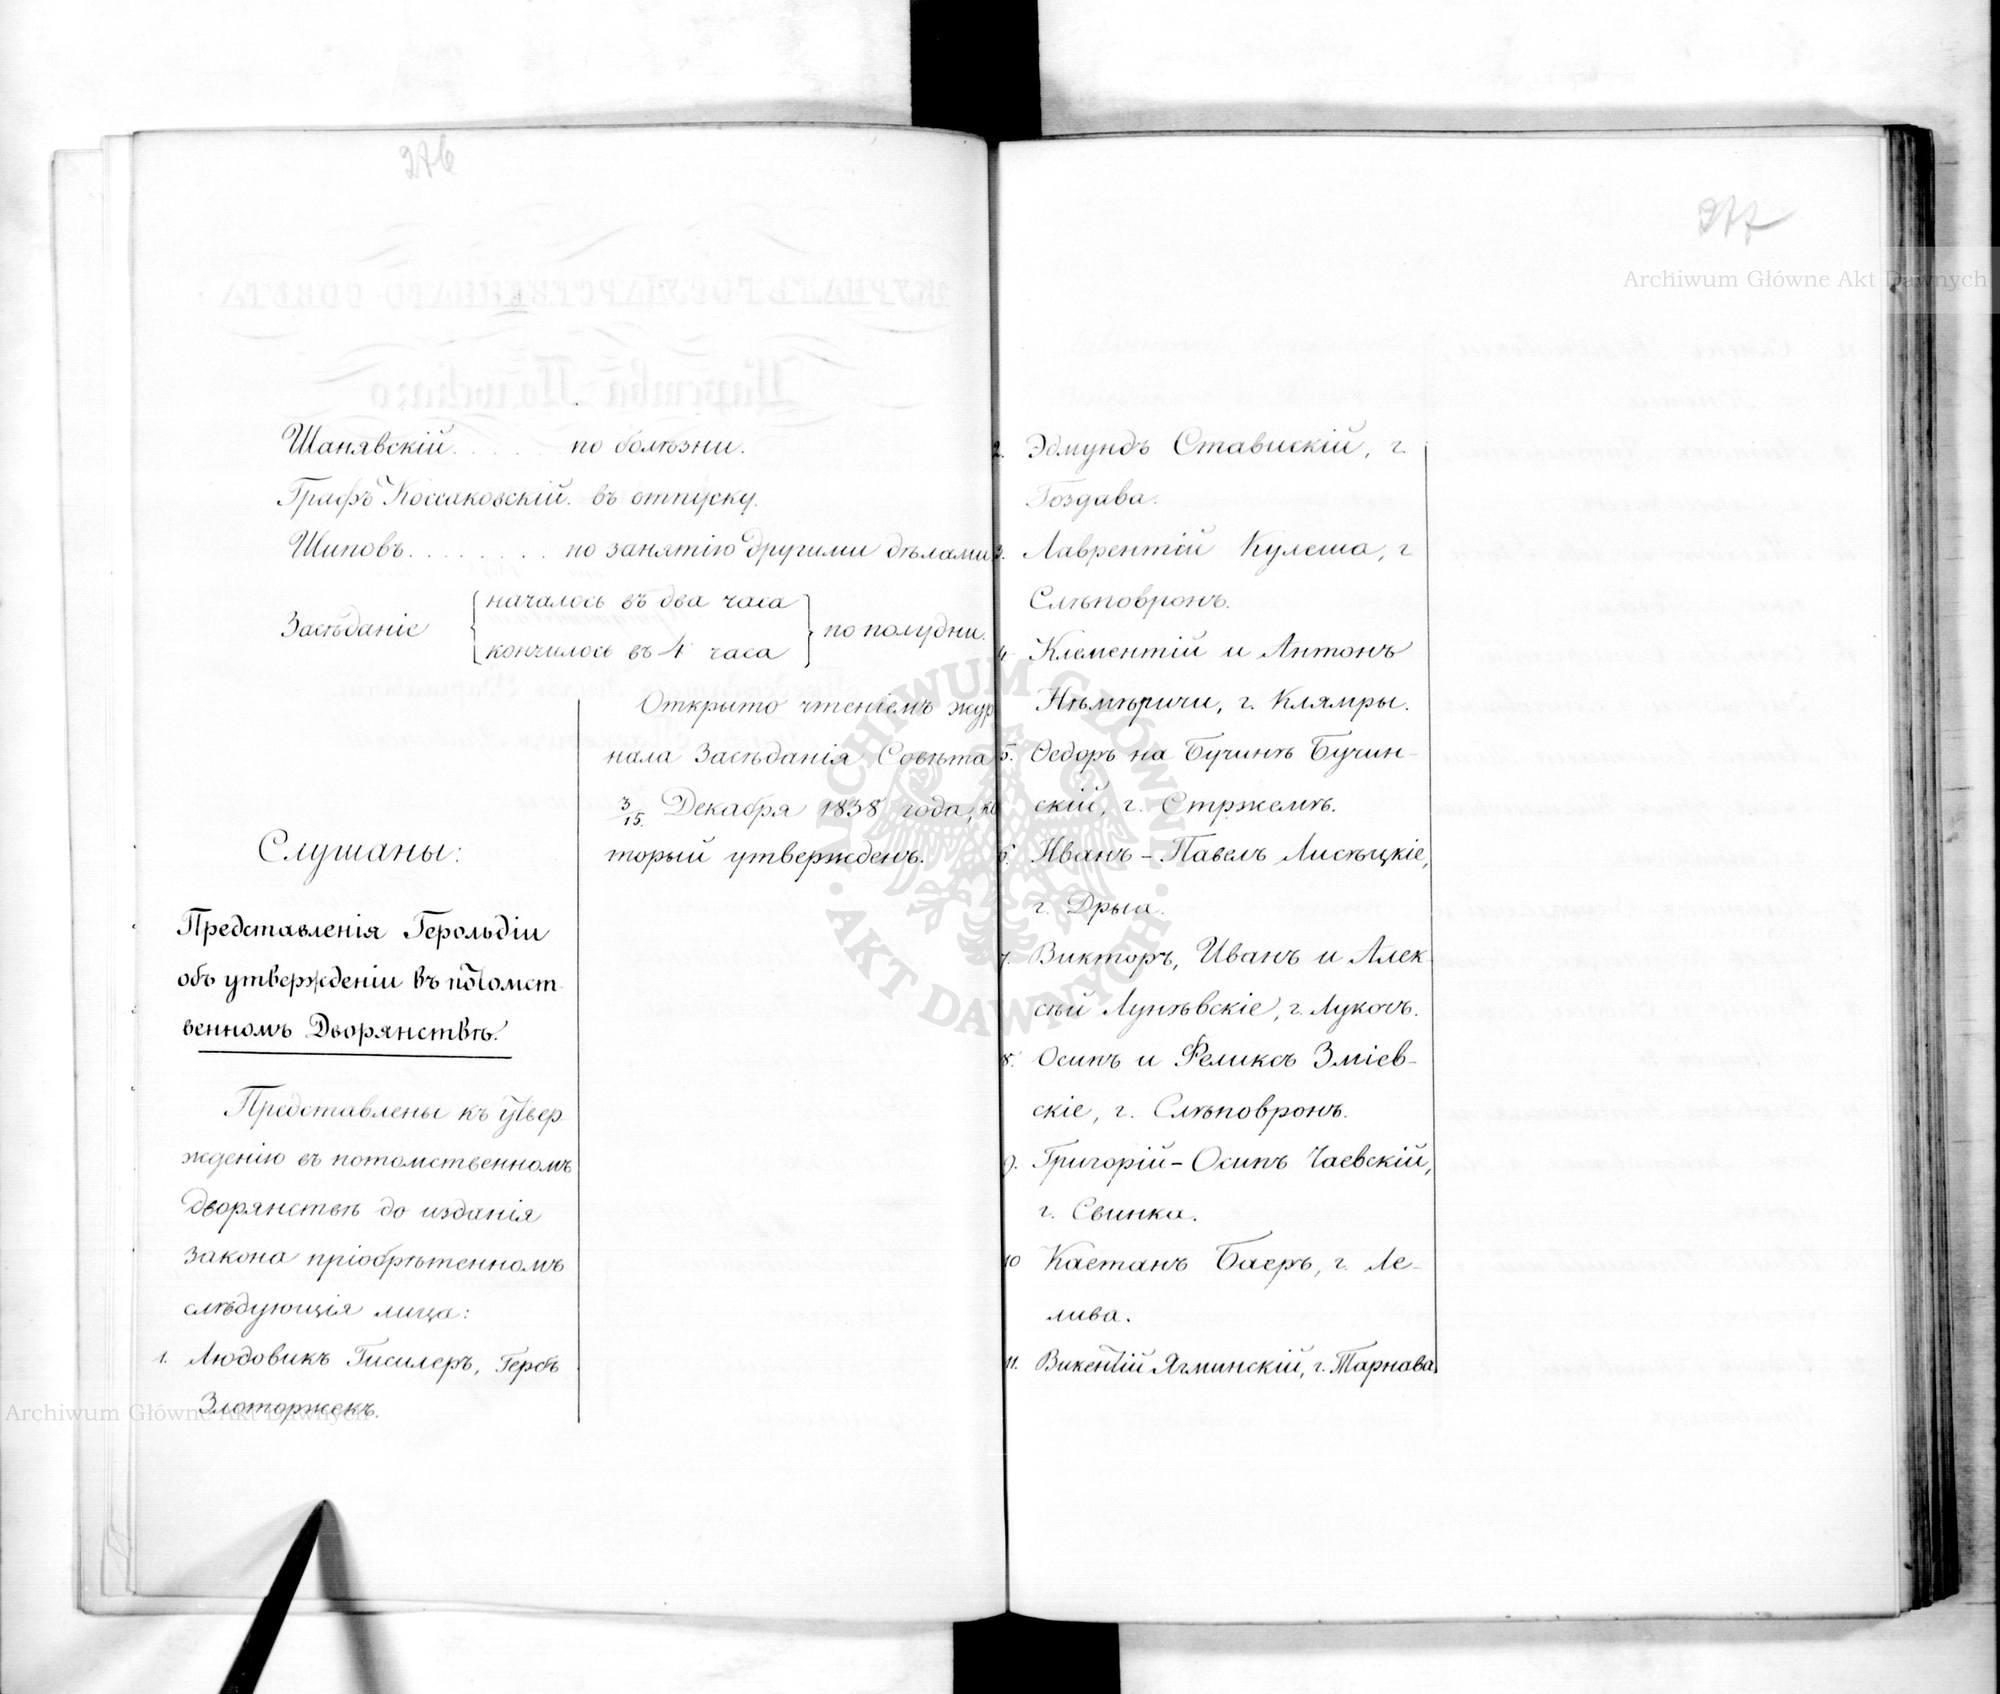 276
Шанявскій. . . . . по болѣзни.
Графъ Коссаковскій. въ отпуску.
Шиповъ. . . . . . . . по занятію другими дѣлами.
Засѣданіе { началось въ два часа
кончилось въ 4 часа } по полудни.
Открыто чтеніемъ жур
нала Засѣданія Совѣта
3/15. Декабря 1838 года, ко
торый утвержденъ.
Слушаны:
Представленія Герольдіи
объ утвержденіи въ потомст
венномъ Дворянствѣ.
Представлены къ утвер
жденію въ потомственномъ
дворянствѣ до изданія
закона пріобрѣтенномъ
слѣдующія лица:
1. Людовикъ Гисилеръ, Гербъ
Злоторжекъ.
277
2. Эдмундъ Ставискій, г.
Гоздава.
3. Лаврентій Кулеша, г
Слѣповронъ.
4. Клементій и Антонъ
Нѣмѣричи, г. Клямры.
5. Ѳедоръ на Бучинѣ Бучин-
скій, г. Стржемѣ.
6. Иванъ-Павелъ Лисѣцкіе,
г. Дрыа.
7. Викторъ, Иванъ и Алек
сѣй Лунѣвскіе, г. Лукочъ.
8. Осипъ и Феликсъ Зміев-
скіе, г. Слѣповронъ.
9. Григорій-Осипъ Чаевскій,
г. Свинка.
10 Каетанъ Баеръ, г. Ле-
лива.
11. Викентій Ягминскій, г. Тарнава.
Archiwum Główne Akt Dawnych
Archiwum Główne Akt Dawnych
ARCHIWUM GŁÓWNE AKT DAWNYCH